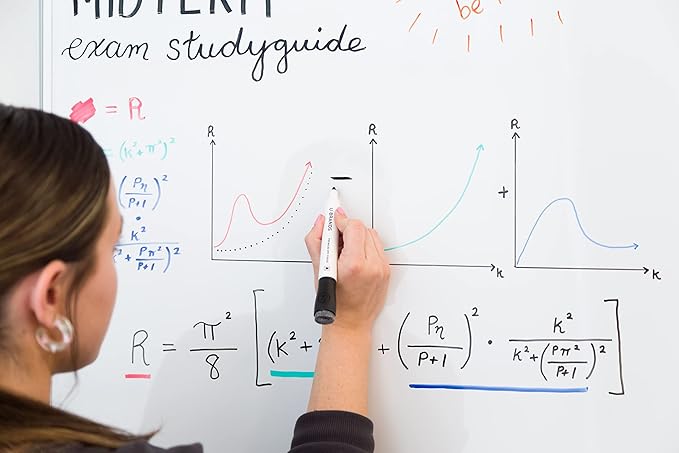 MIDTERM
exam studyguide
be
= R
= (K² + π²)²
(Pη/P+1)²
•
K²/K² + (Pπ²/P+1)²
R
K
R
K
+
R
K
U BRANDS
R = π²/8 [(K² + (Pη/P+1)² • K²/K² + (Pπ²/P+1)²]